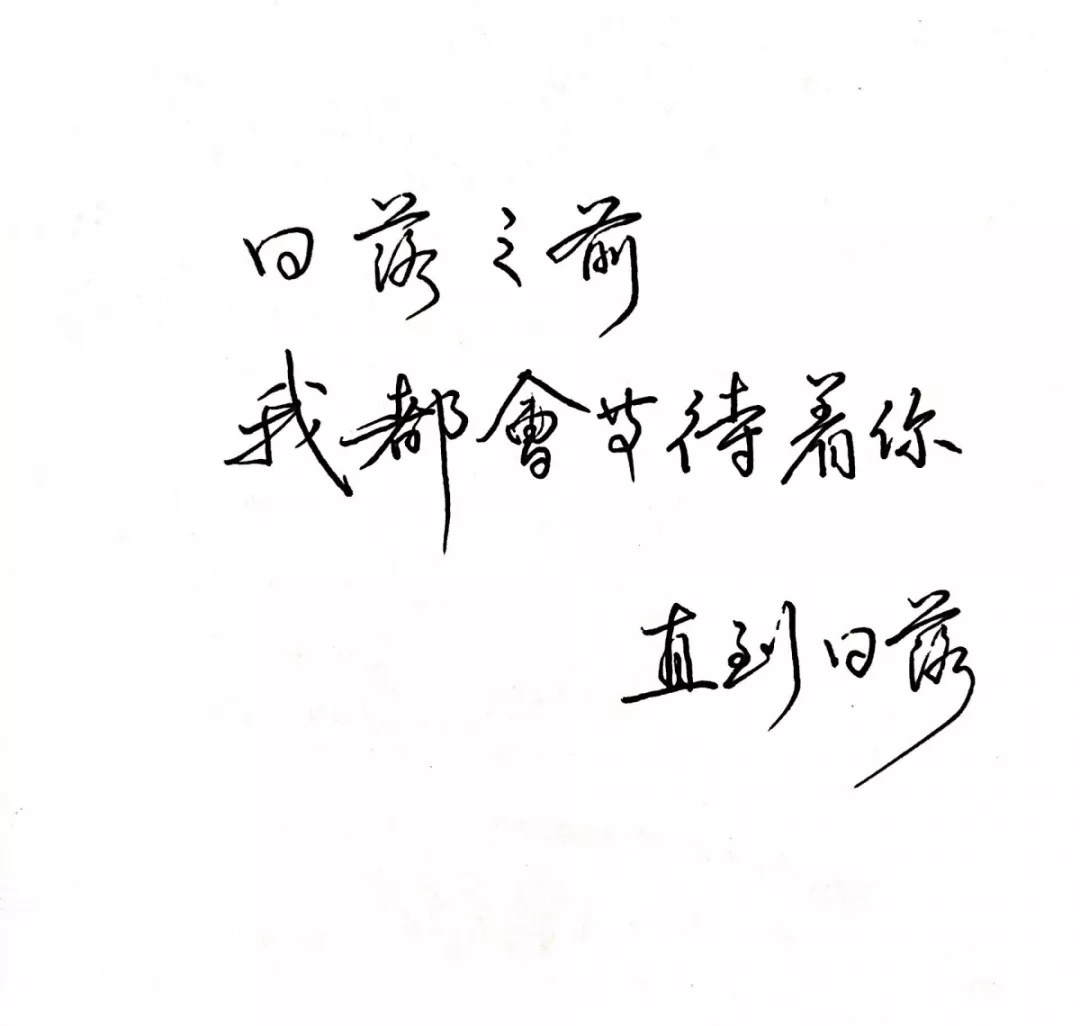 日落之前
我都會等待着你
直到日落